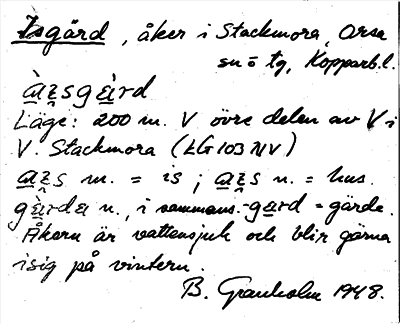 Isgård, åker i Stackmora, Orsa
sn = tg, Kopparb.l.
àzsgàrd
Läge: 200 m. V övre delen av V i
V. Stackmora (LG 103 NV)
azs m. = is; azs n. = hus.
gàrda n., i sammans. -gard = gärde.
Åkern är vattensjuk och blir gärna
isig på vintern.
B. Granholm 1948.